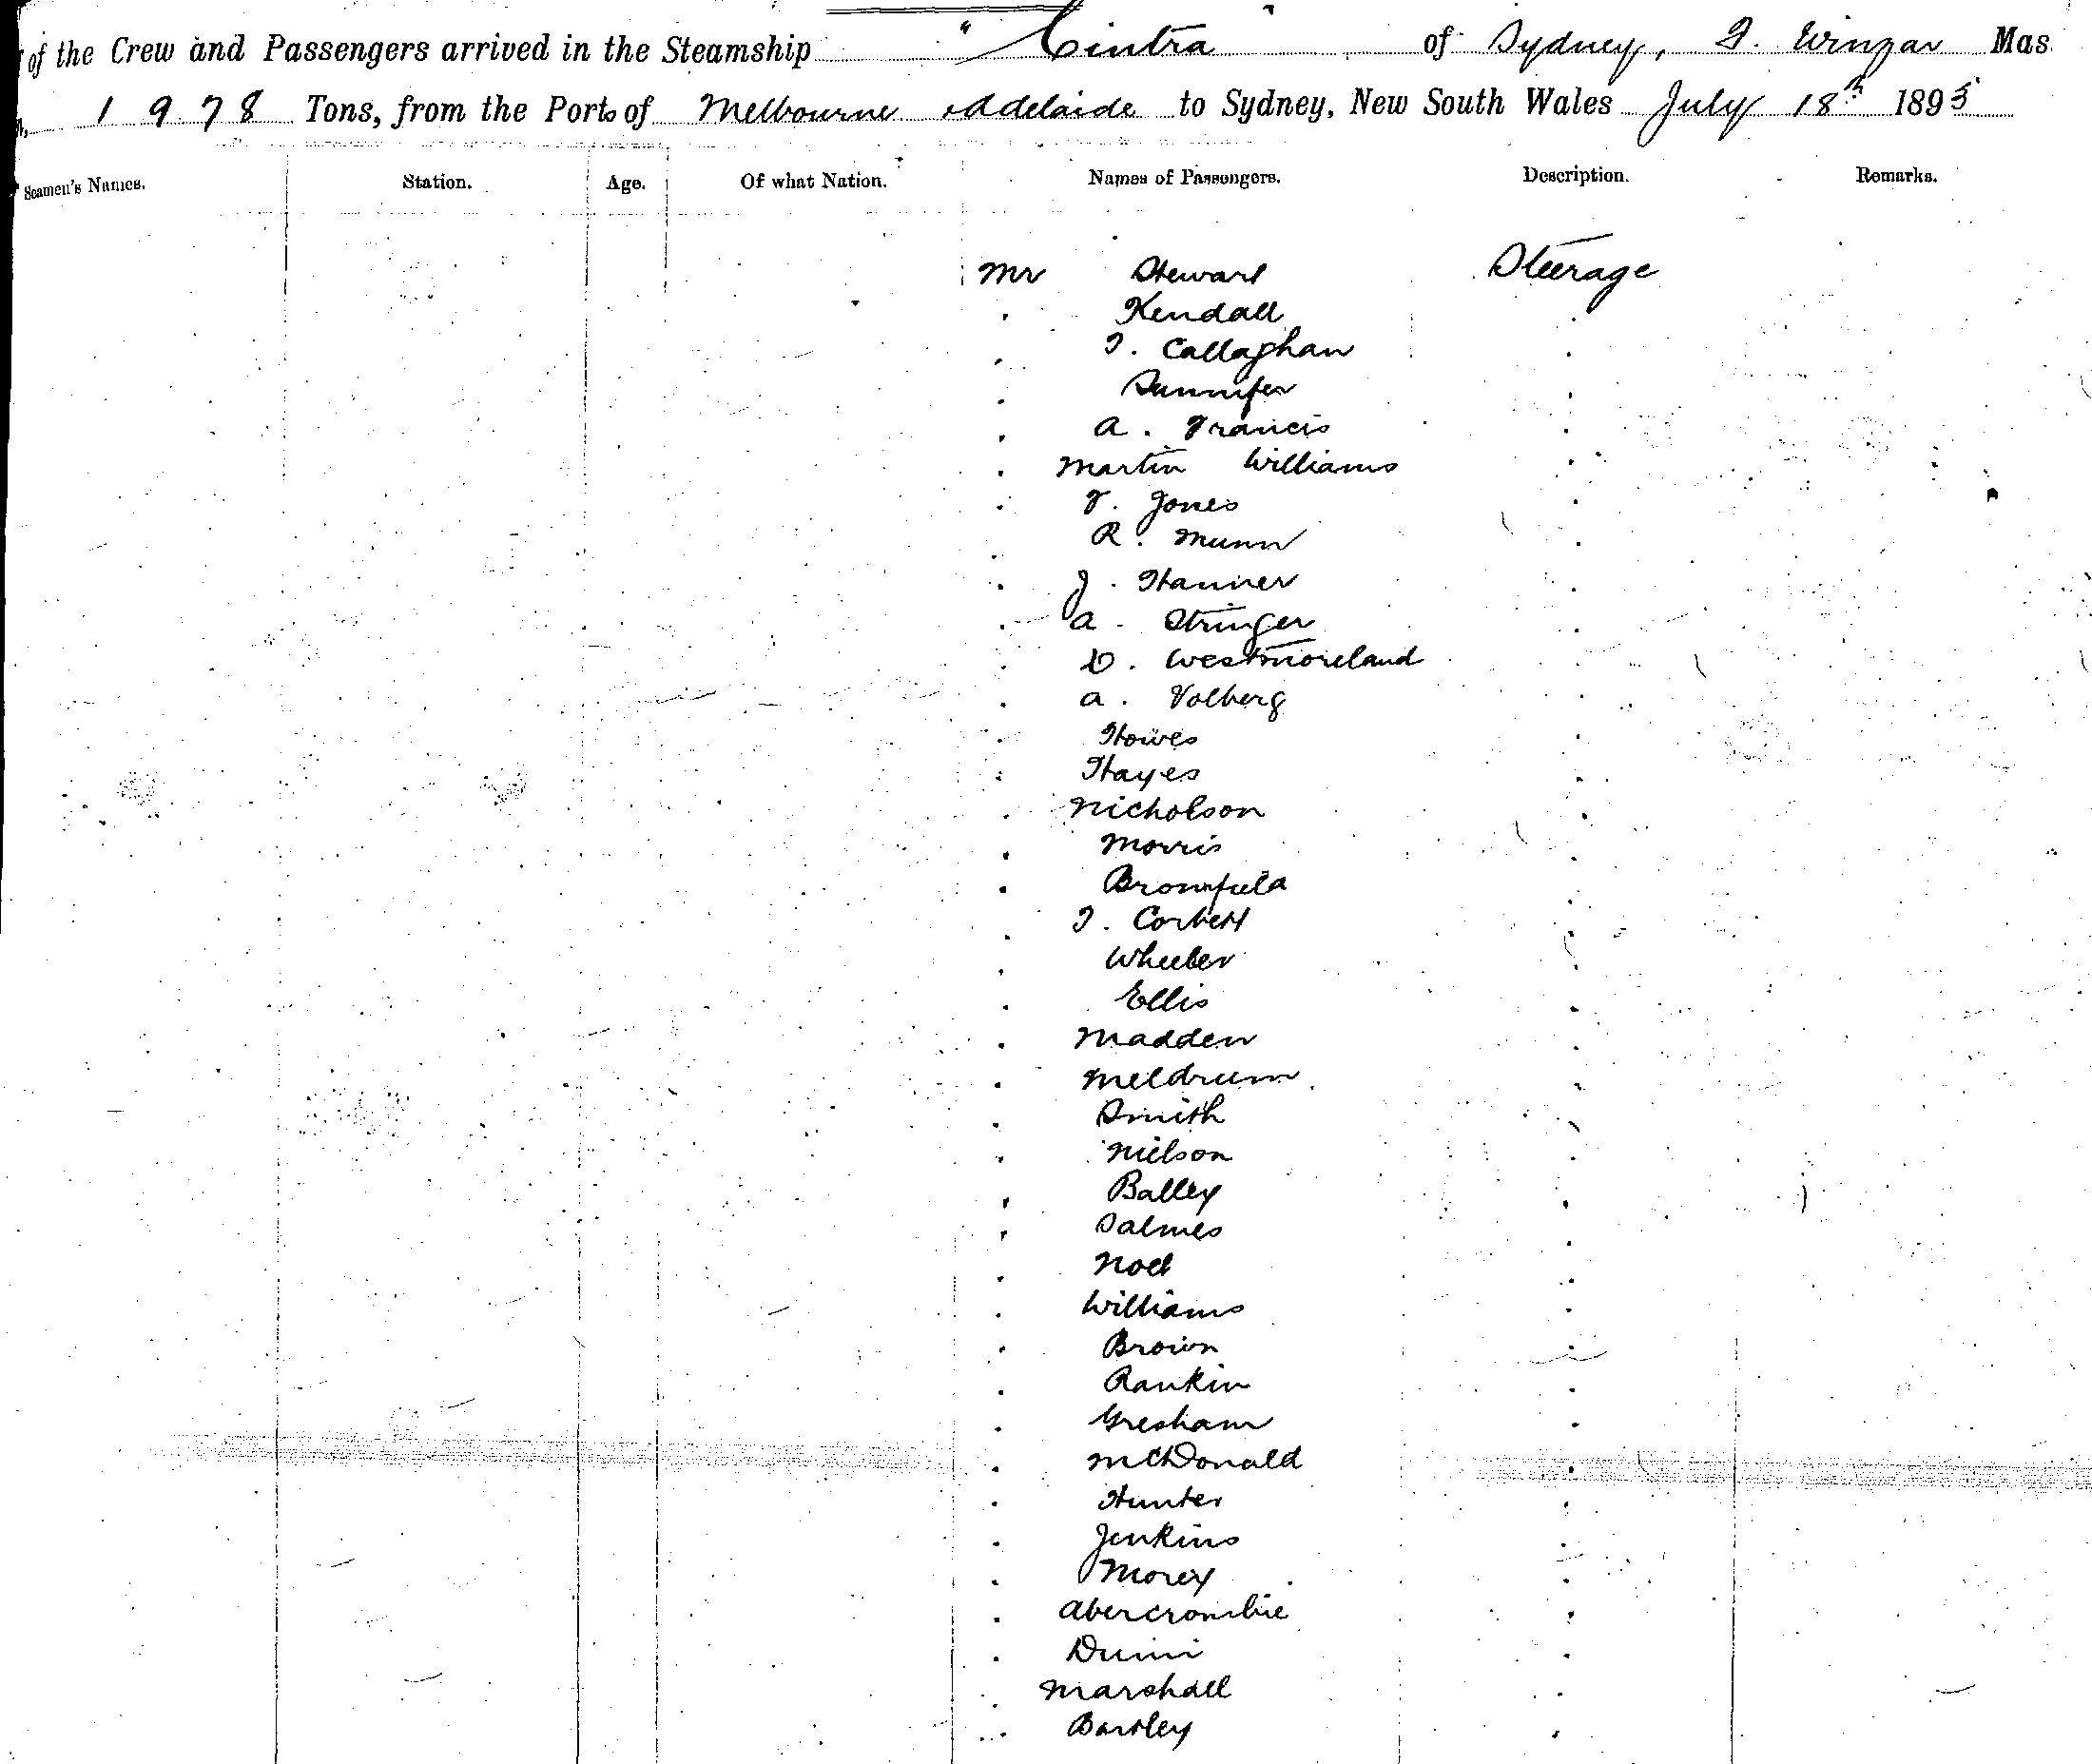 of the Crew and Passengers arrived in the Steamship "Cintra" of Sydney, Mas
1978 Tons, from the Ports of Melbourne & Adelaide to Sydney, New South Wales July 18th 1895
Seamen's Names. Station. Age. Of what Nation. Names of Passengers. Description. Remarks.
Mr Stewart Steerage
Kendall
T. Callaghan
Sunnifer
A. Francis
Martin Williams
F. Jones
R. Munn
J. Hanner
A. Stringer
D. Westmoreland
A. Volberg
Howes
Hayes
Nicholson
Morris
Bromfield
T. Corbett
Wheeler
Ellis
Madden
Meldrum
Smith
Nielson
Balley
Salmes
Noel
Williams
Brown
Rankin
Gresham
McDonald
Hunter
Jenkins
Morey
Abercrombie
Dunn
Marshall
Bartley